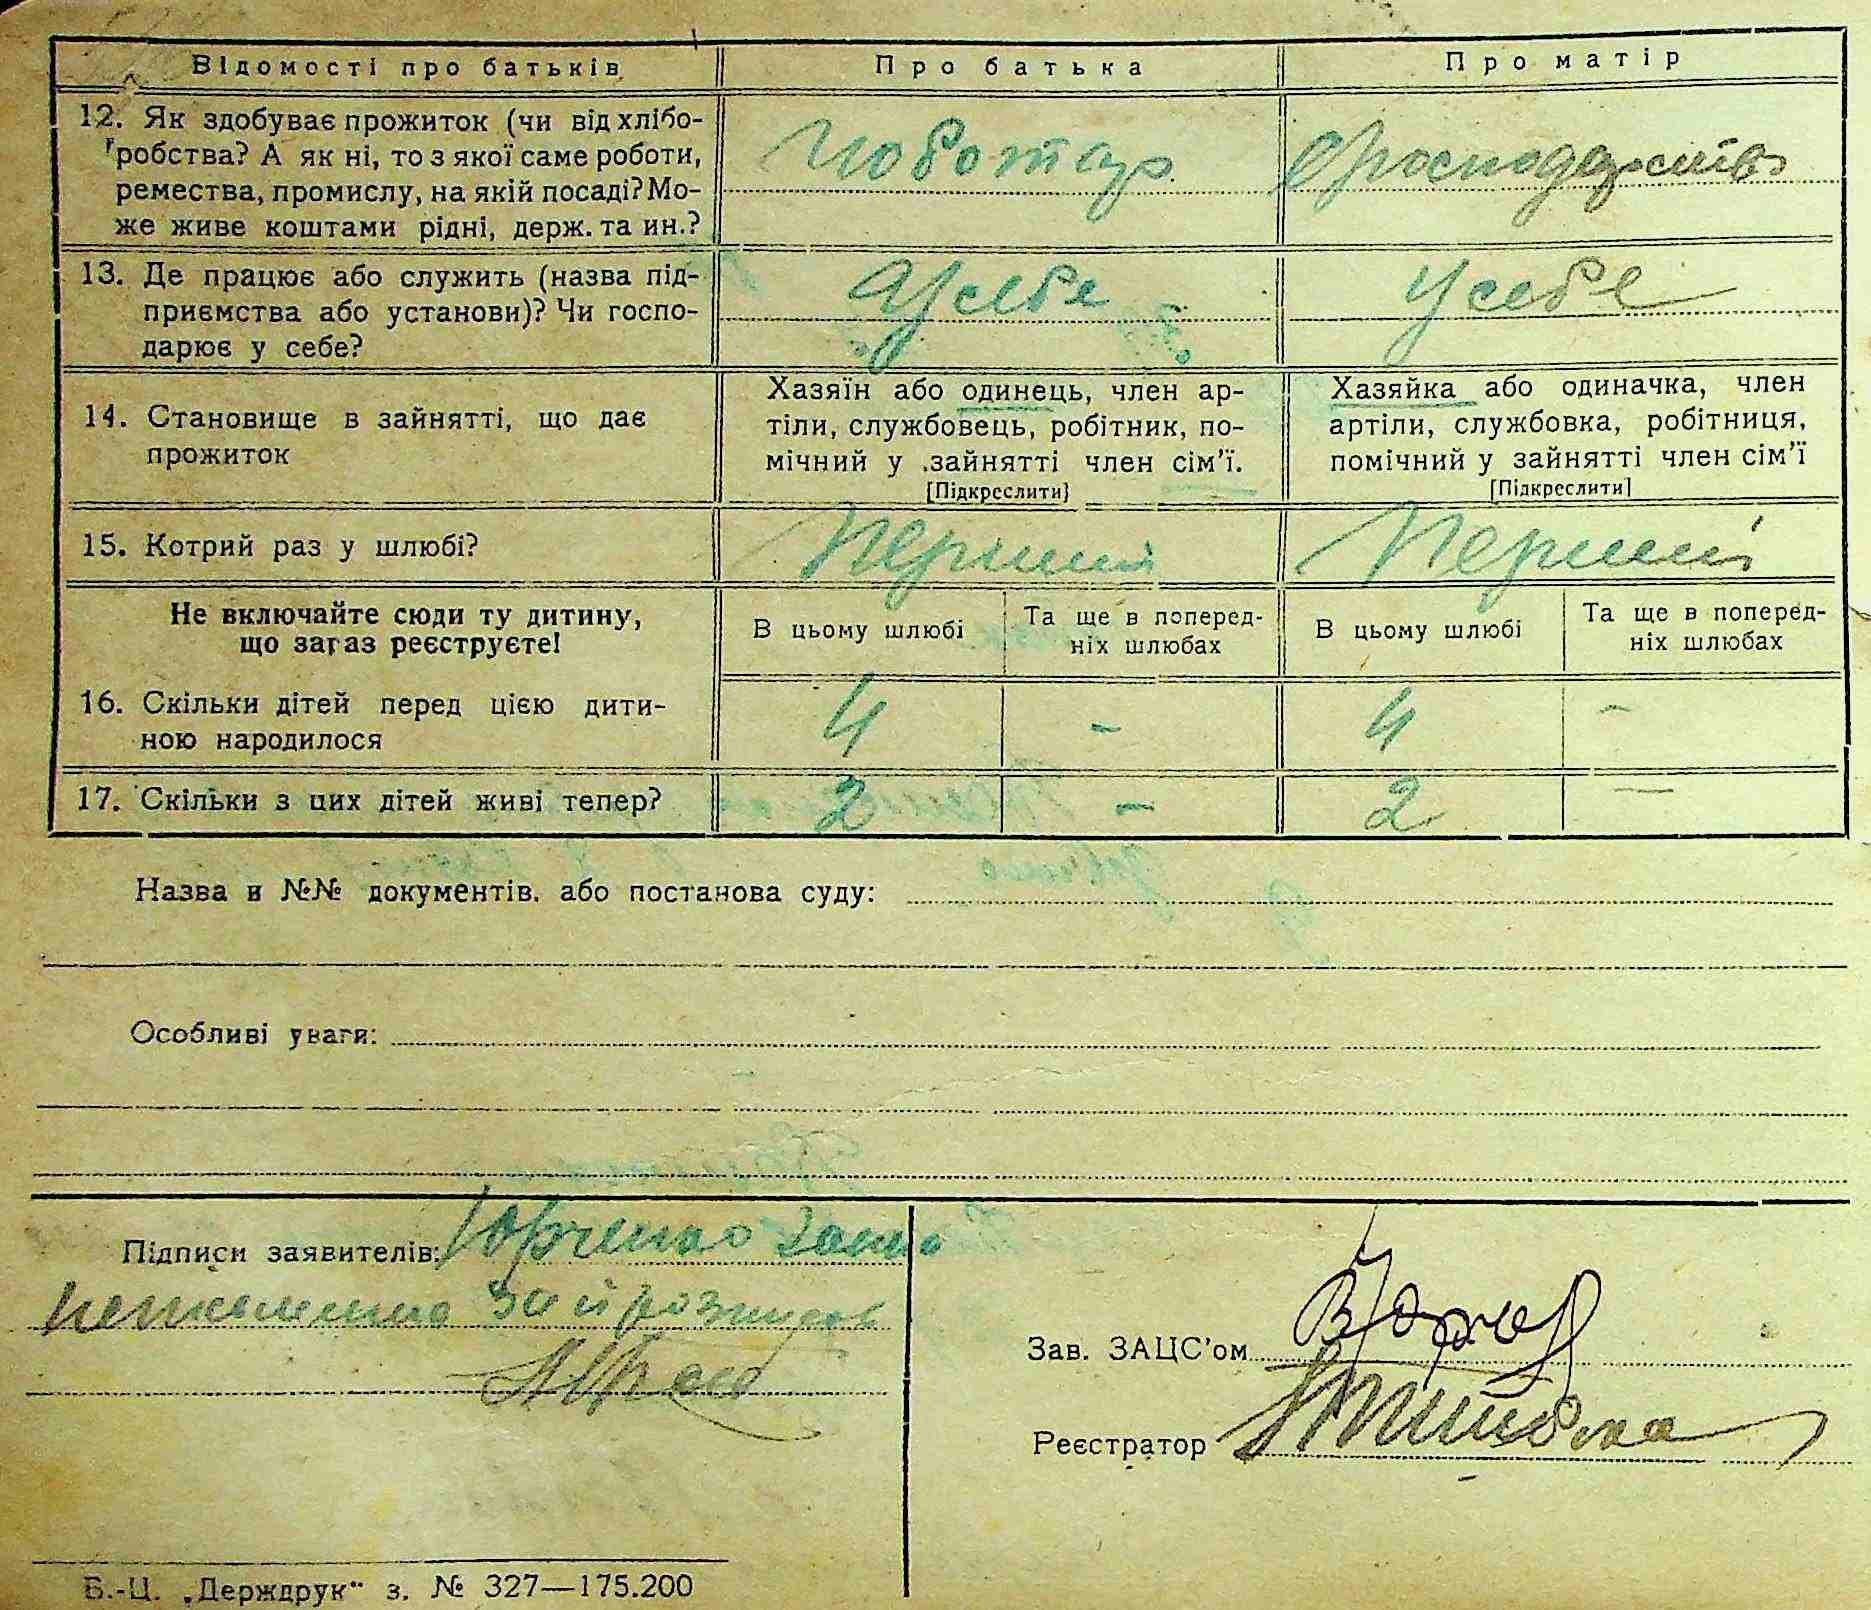 Відомості про батьків
Про батька
Про матір
12. Як здобуває прожиток (чи від хлібо-
робства? А як ні, то з якої саме роботи,
ремества, промислу, на якій посаді? Мо-
же живе коштами рідні, держ. та ин.?
Чоботар
13. Де працює або служить (назва під-
приємства або установи)? Чи госпо-
дарює у себе?
У себе
У себе
14. Становище в зайнятті, що дає
прожиток
Хазяїн або одинець, член ар-
тіли, службовець, робітник, по-
мічний у зайнятті член сім'ї.
[Підкреслити]
Хазяйка або одиначка, член
артіли, службовка, робітниця,
помічний у зайнятті член сім'ї
[Підкреслити]
15. Котрий раз у шлюбі?
Перший
Перший
Не включайте сюди ту дитину,
що зараз реєструєте!
В цьому шлюбі
Та ще в поперед-
ніх шлюбах
В цьому шлюбі
Та ще в поперед-
ніх шлюбах
16. Скільки дітей перед цією дити-
ною народилося
4
-
4
-
17. Скільки з цих дітей живі тепер?
2
-
2
-
Назва и №№ документів. або постанова суду:
Особливі уваги:
Підписи заявителів:
Зав. ЗАЦС'ом
Реєстратор
Б.-Ц. „Держдрук" з. № 327—175.200